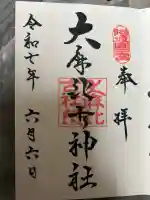 奉拝
大麻比古神社
令和七年 六月六日